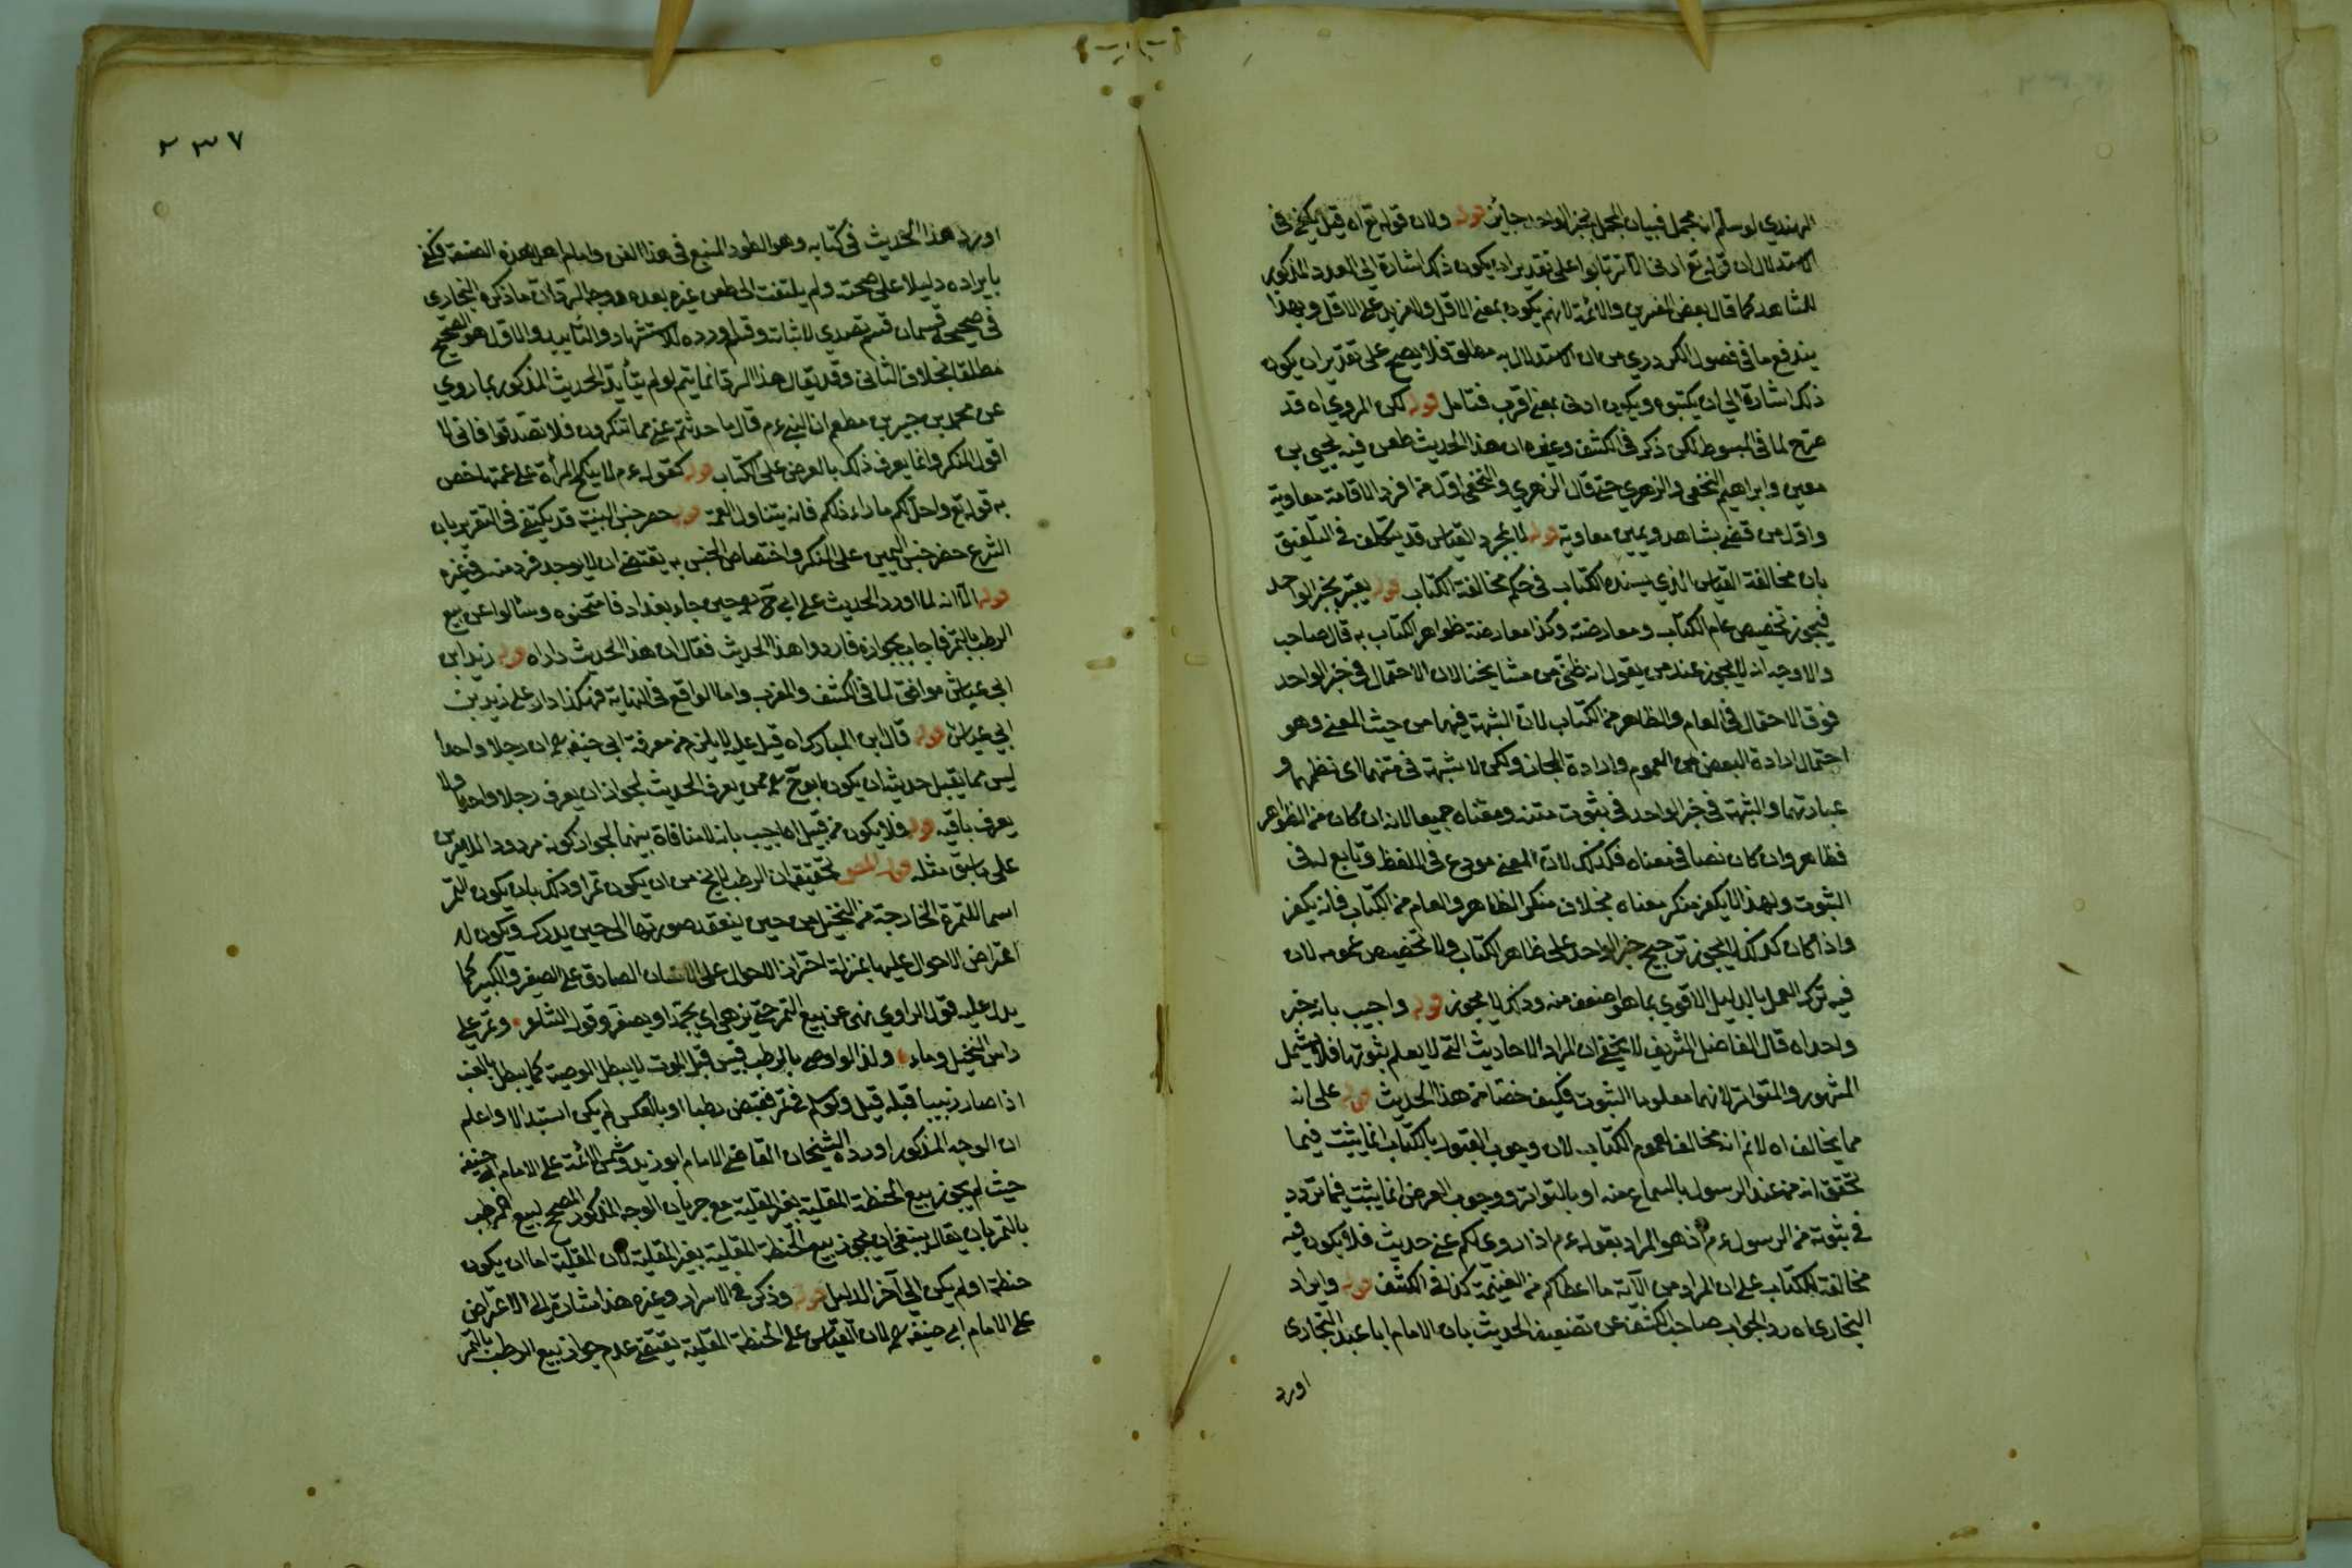 الهندي لو سلم انه مجمل فبيان المجمل بخبر الواحد جائز قوله ولان قوله تع اه قيل يكفي في
الاستدلال ان قوله تع ادنى الا ترتابوا على تقدير ان يكون ذلك اشارة الى العدد المذكور
للشاهد كما قال بعض المفسرين والائمة لانهم يكون بمعنى الاقل ولا مزيد على الاقل وبهذا
يندفع ما في فصول الكردري من ان الاستدلال به مطلق فلا يصح على تقدير ان يكون
ذلك اشارة الى ان يكتبوه ويكون ادنى بمعنى اقرب فتامل قوله لكن المروي اه قد
صرح لما في المبسوط لكن ذكر في الكشف وغيره ان هذا الحديث طعن فيه يحيى بن
معين وابراهيم النخعي والزهري حتى قال الزهري والنخعي اول من افرد الاقامة معاوية
واول من قضى بشاهد ويمين معاوية قوله لا بمجرد القياس قد يتكلف في التلفيق
بان مخالفة القياس الذي يسنده الكتاب في حكم مخالفة الكتاب قوله يعتبر بخبر الواحد
فيجوز تخصيص عام الكتاب ومعارضته وكذا معارضة ظواهر الكتاب به قال صاحب
والاوجه انه لا يجوز عند من يقول انه ظني من مشايخنا لان الاحتمال في خبر الواحد
فوق الاحتمال في العام والظاهر من الكتاب لان الشبهة فيهما من حيث المعنى وهو
احتمال ارادة البعض من العموم وارادة المجاز ولكن لا شبهة في متنهما اى نظمهما و
عبارتهما والشبهة في خبر الواحد في ثبوت متنه ومعناه جميعا لانه ان كان من الظواهر
فظاهر وان كان نصا في معناه فكذلك لان المعنى مودع في اللفظ وتابع له في
الثبوت ولهذا لا يكفر منكر معناه بخلاف منكر الظاهر والعام من الكتاب فانه يكفر
واذا كان كذلك لا يجوز ترجيح خبر الواحد على ظاهر الكتاب ولا تخصيص عمومه لان
فيه ترك العمل بالدليل الاقوى بما هو اضعف منه وذلك لا يجوز قوله واجيب بانه خبر
واحد اه قال الفاضل الشريف لا يخفى ان المراد الاحاديث التي لا يعلم ثبوتها فلا يشمل
المشهور والمتواتر لانهما معلوما الثبوت فكيف خصا من هذا الحديث قوله على انه
مما يخالف اه لانم انه مخالف لعموم الكتاب لان وجوب القبول بالكتاب انما يثبت فيما
تحقق انه من عند الرسول بالسماع منه او بالتواتر ووجوب العرض انما يثبت فيما تردد
في ثبوته من الرسول ءم اذ هو المراد بقوله ءم اذا روي لكم عني حديث فلا يكون فيه
مخالفة للكتاب على ان المراد من الآية ما اعطاكم من الغنيمة كذا في الكشف قوله وايراد
البخارى اه رد الجواب صاحب الكشف عن تضعيف الحديث بان الامام ابا عبد البخارى
اورد
٢٣٧
اورد هذا الحديث في كتابه وهو الطود المنيع في هذا الفن وامام اهل هذه الصنعة فكفى
بايراده دليلا على صحته ولم يلتفت الى طعن غيره بعده ووجه الرد ان ما ذكره البخارى
في صحيحه قسمان قسم تصدى لاثباته وقسم اورده للاستشهاد والتأييد والاول هو الصحيح
مطلقا بخلاف الثانى وقد يقال هذا الرد انما يتم لو لم يتأيد الحديث المذكور بما روي
عن محمد بن جبير بن مطعم ان النبى ءم قال ما حدثتم عني مما تنكرون فلا تصدقوا فانى لا
اقول المنكر وانما يعرف ذلك بالعرض على الكتاب قوله كقوله ءم لا ينكح المرأة على عمتها خص
به قوله تع واحل لكم ما وراء ذلكم فانه يتناول العمة قوله حصر جنس البينة قد يكتفى في التقرير بان
الشرع حصر جنس اليمين على المنكر واختصاص الجنس به يقتضى ان لا يوجد فرد منه في غيره
قوله الا انه لما اورد الحديث على ابي ح رح حين جاء بغداد فامتحنوه وسالوا عن بيع
الرطب بالتمر فاجاب بجوازه فاردوا هذا الحديث فقال ان هذا الحديث دار اه قوله زيد ابن
ابي عياش موافق لما في الكشف والمغرب واما الواقع في النهاية فهكذا دار على زيد بن
ابي عياش قوله قال ابن المبارك اه قيل عليه لا يلزم من معرفة ابي حنيفه رح ان رجلا واحدا
ليس مما يقبل حديثه ان يكون ابو ح رح ممن يعرف الحديث لجواز ان يعرف رجلا واحدا ولا
يعرف باقيه قوله فلا يكون من قبيل اه اجيب بانه لا منافاة بينهما لجواز كونه مردودا لامرين
على ما سبق مثله قوله المص تحقيقه ان الرطب لا يخ من ان يكون تمرا وذلك بان يكون التمر
اسما للثمرة الخارجة من النخيل من حين ينعقد صورتها الى حين يدرك ويكون له
اعتراض الاحوال عليها بمنزلة اعتراض الاحوال على الانسان الصادق على الصغير والكبير كما
يدل عليه قول الراوي نهى عن بيع التمر حتى تزهى اى يحمر او يصفر وقول الشاعر وتمر على
راس النخيل وماء ولذا لو اوصى بالرطب فيبس قبل الموت لا يبطل الوصية كما يبطل بالعنب
اذا صار زبيبا قبله قيل ولو سلم في تمر فقبض رطبا او بالعكس لم يكن استبدالا واعلم
ان الوجه المذكور اورده الشيخان القاضي الامام ابو زيد وشمس الائمة على الامام ابي حنيفه
حيث لم يجوز بيع الحنطة المقلية بغير المقلية مع جريان الوجه المذكور المصحح لبيع الرطب
بالتمر بان يقال ينبغى ان يجوز بيع الحنطة المقلية بغير المقلية لان المقلية اما ان يكون
حنطة او لم يكن الى آخر الدليل قوله وذكر في الاسرار وغيره هذا اشارة الى الاعتراض
على الامام ابي حنيفه رح لان القياس على الحنطة المقلية يقتضى عدم جواز بيع الرطب بالتمر